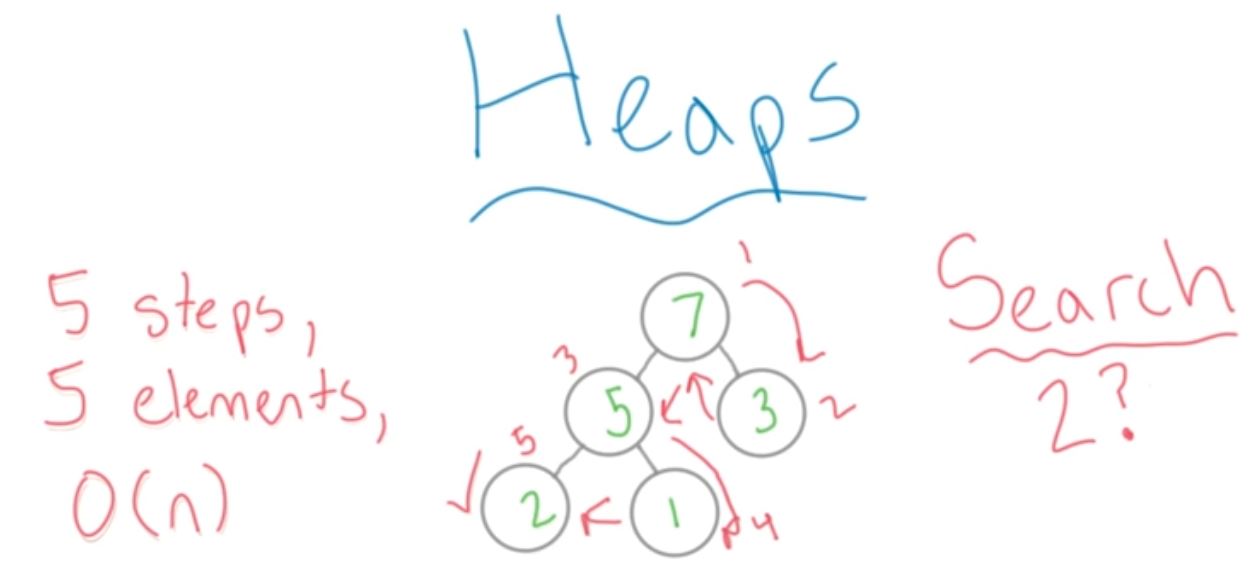 Heaps
5 steps,
5 elements,
O(n)
1
7
3
5
3
2
5
2
1
4
Search
2?